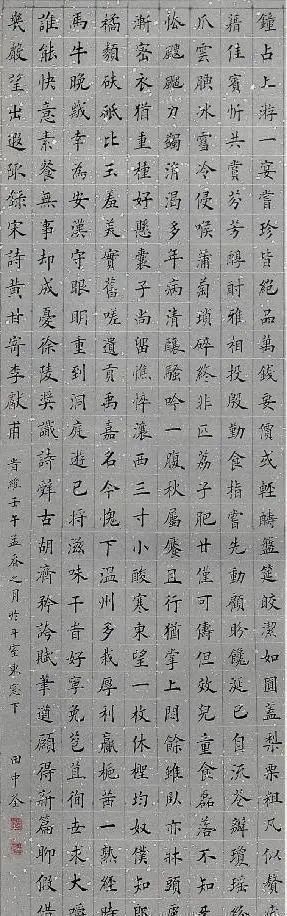 鐘占上游一宴嘗珍皆絕品萬錢要價或輕酬盤筵皎潔如圓蓋梨栗粗凡似贅
藉佳賓忻共賞芬芳醇酎雅相投殷勤食指嘗先動顧盼饞涎已自流苍瓣瓊瑤
爪雲腴冰雪冷侵喉蒲萄瑣碎終非匹荔子肥甘僅可儔但效兒童食磊落不知
忪颼颼刀蠲消渴多年病清釀騷吟一腹秋屬饜且行猶掌上悶餘雖臥亦牀頭
漸密衣猶重種好懸囊子尚留憔悴瀼西三寸小酸寒東望一枚休裡均奴僕知
橘類砆砥比玉羞美實舊嗟遺貢禹嘉名今愧下溫州多栽厚利贏梔茜一熟經時
馬牛晚歲幸為安漢守眼明重到洞庭遊已將滋味干昔好寧免苞苴徇世求大
誰能快意素餐無事却成憂徐陵奬識詩辭古胡濟矜誇賦筆遒願得新篇聊假借
炎嚴望出遐陬錄宋詩黃甘寄李獻甫
歲維壬午孟春之月於千室東窓下 田中